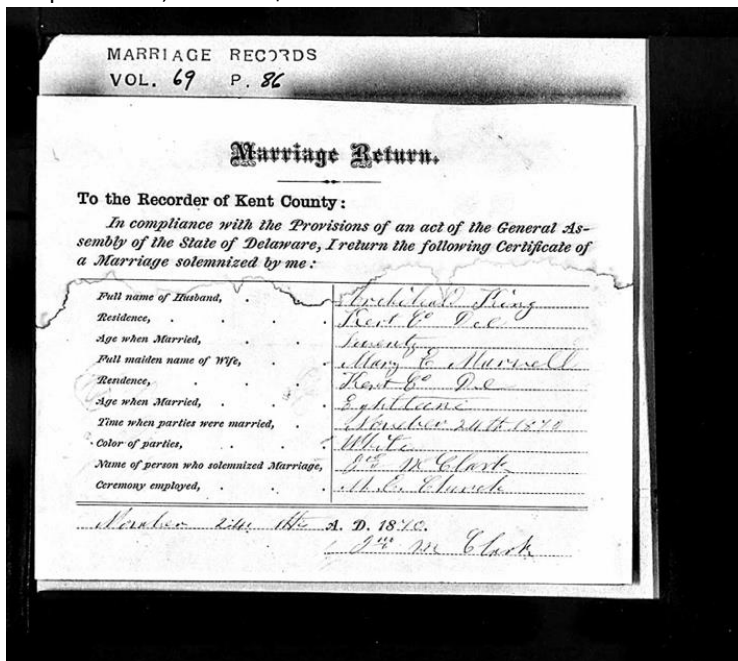 MARRIAGE RECORDS
VOL. 69 P. 86
Marriage Return.
To the Recorder of Kent County:
In compliance with the Provisions of an act of the General As-
sembly of the State of Delaware, I return the following Certificate of
a Marriage solemnized by me:
Full name of Husband, Archibald King
Residence, Kent Co Del
Age when Married, Twenty
Full maiden name of Wife, Mary E Marvell
Residence, Kent Co De
Age when Married, Eightteene
Time when parties were married, November 24th 1870
Color of parties, White
Name of person who solemnized Marriage, Jno M Clark
Ceremony employed, M. E. Church
November 24th A. D. 1870.
Jno M Clark